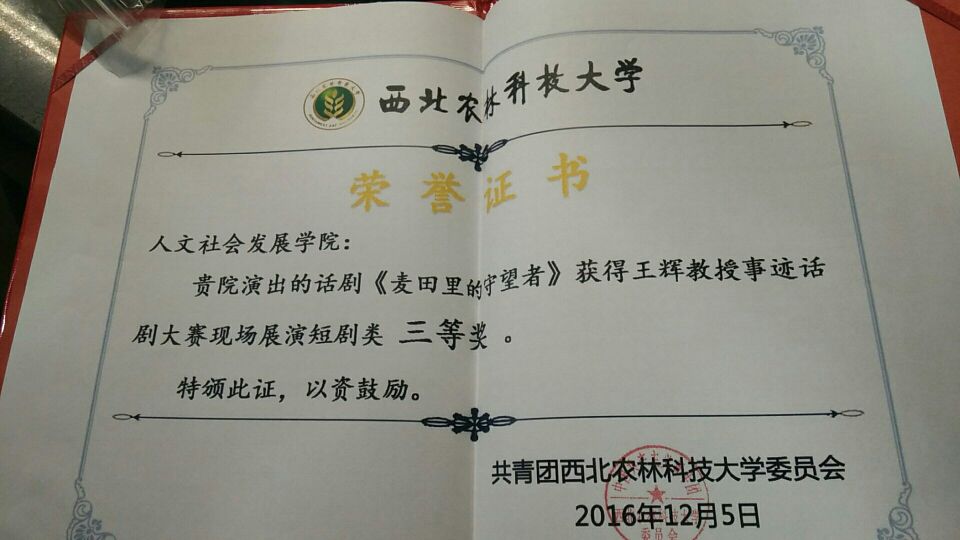 西北农林科技大学
荣誉证书
人文社会发展学院：
贵院演出的话剧《麦田里的守望者》获得王辉教授事迹话
剧大赛现场展演短剧类 三等奖 。
特颁此证，以资鼓励。
共青团西北农林科技大学委员会
2016年12月5日
委员会